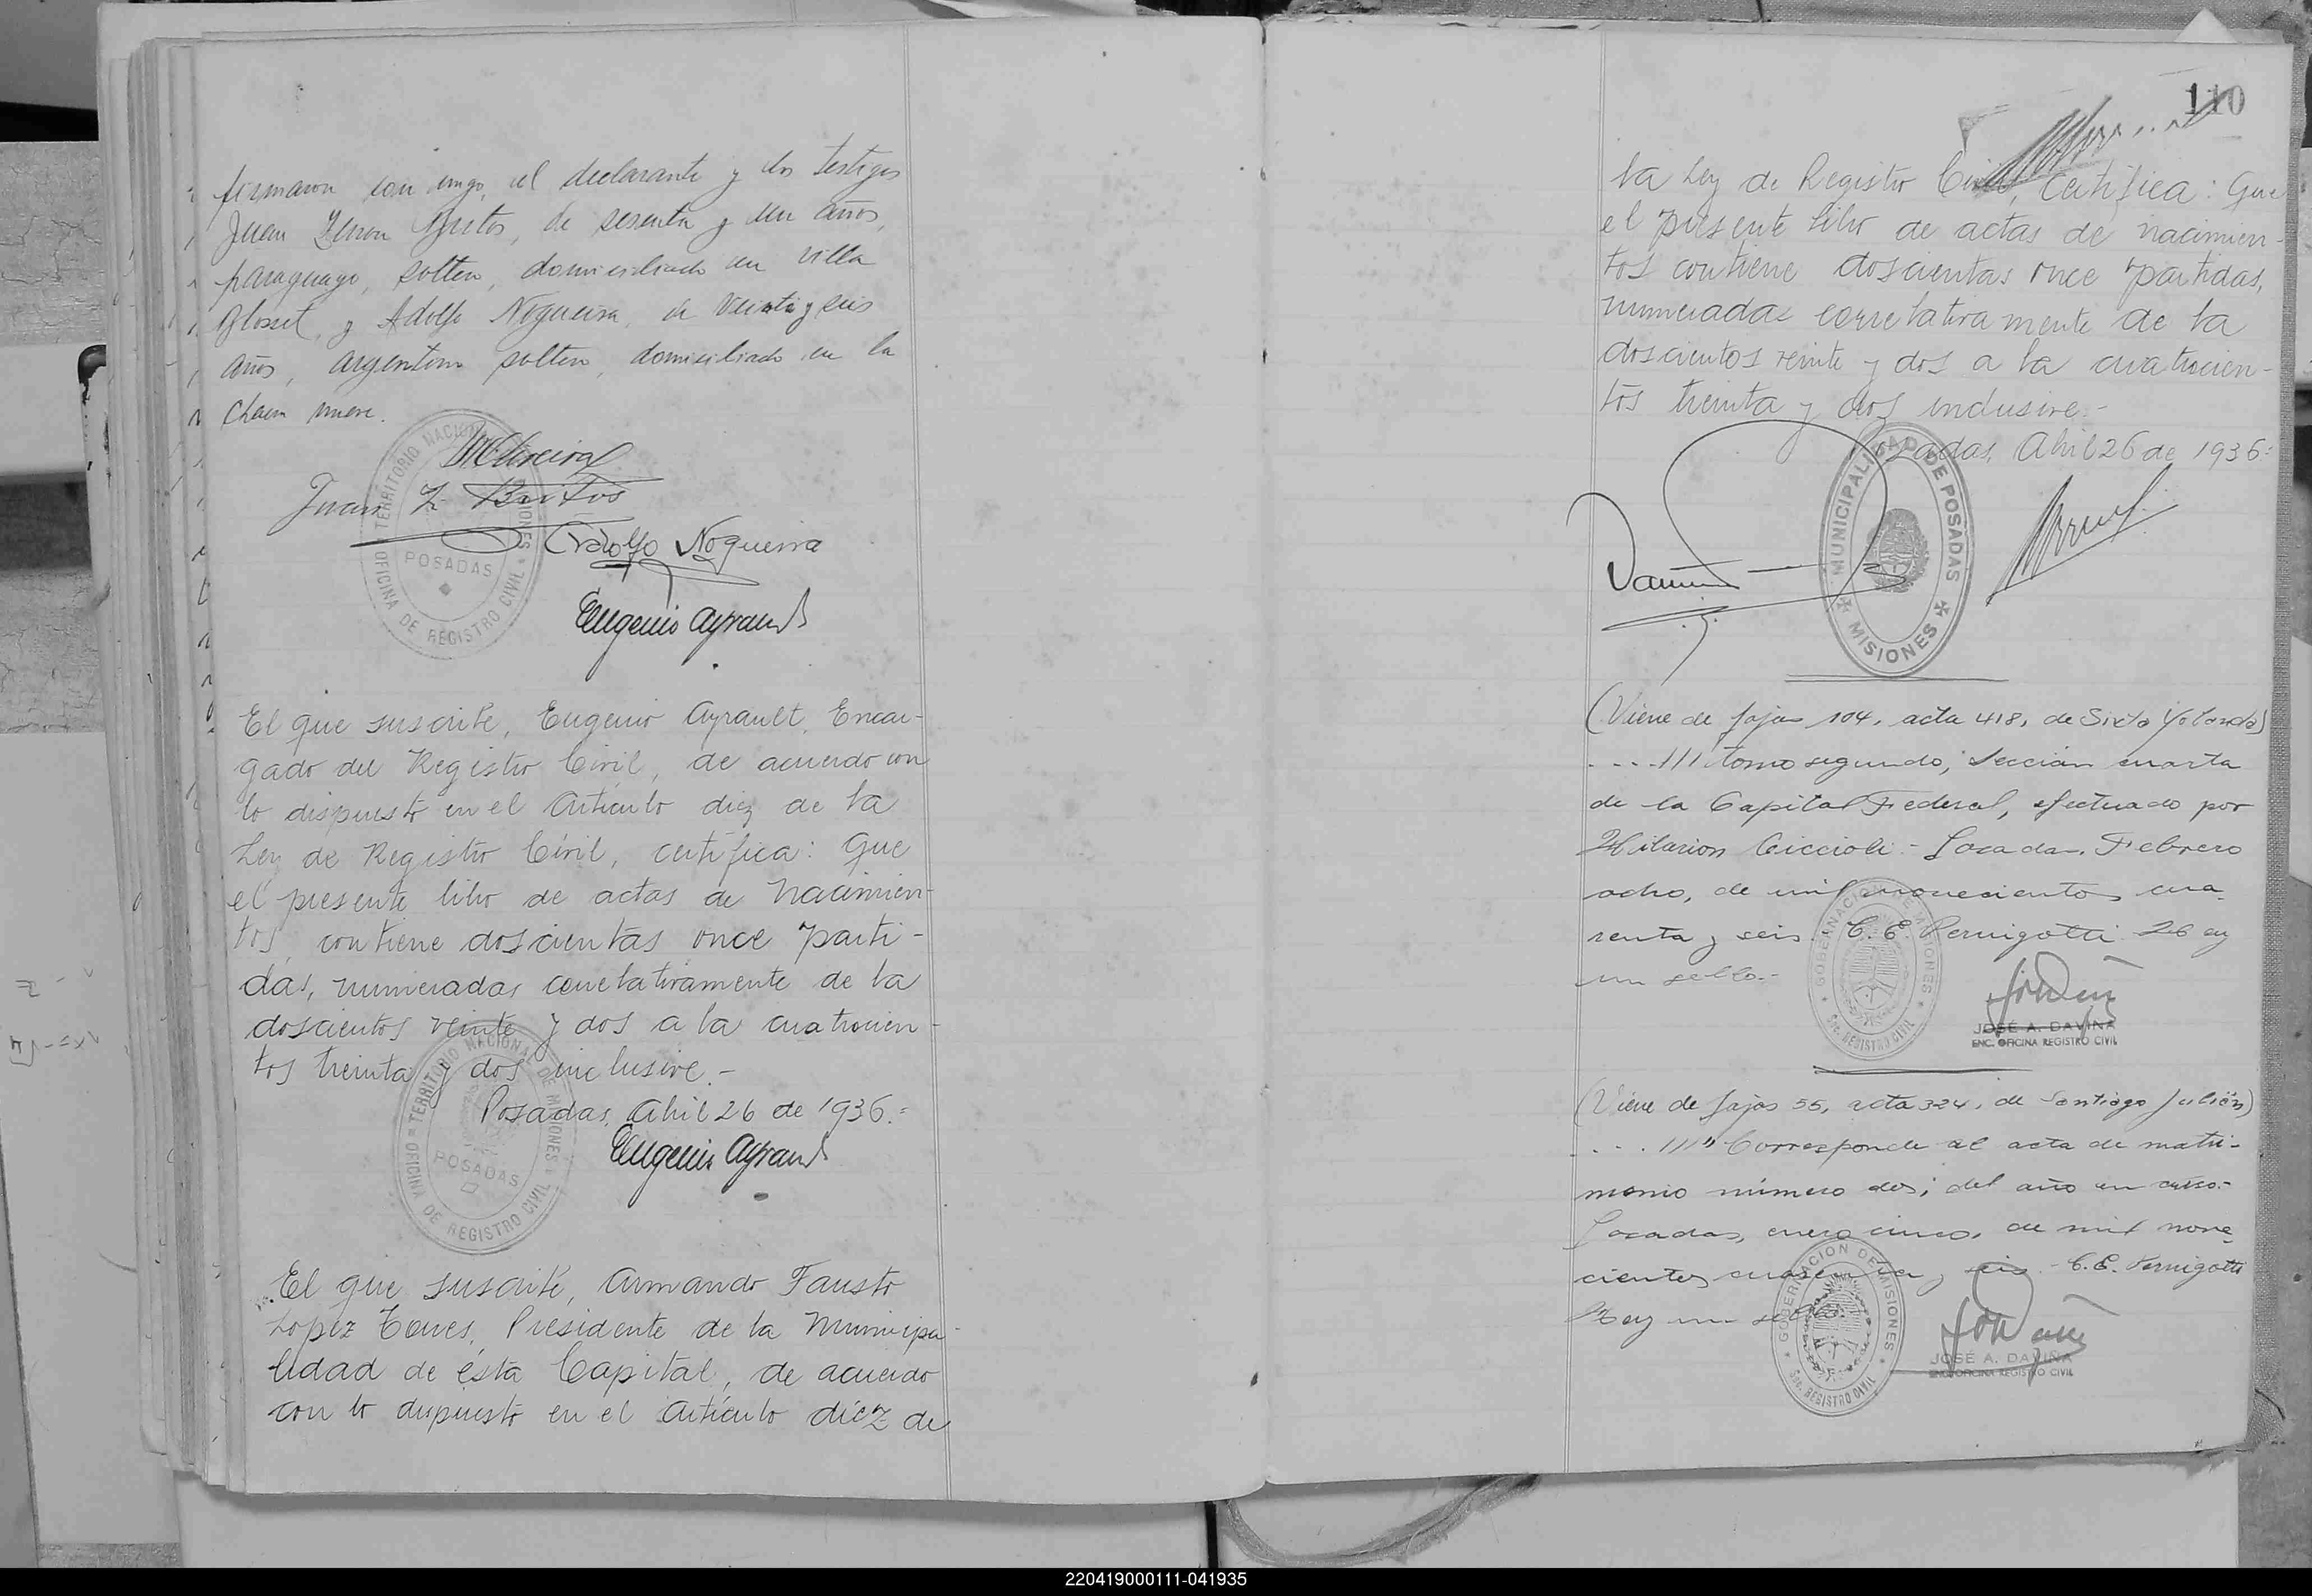 firmaron con migo, el declarante y los testigos
Juan Zenon Britos, de sesenta y un años,
paraguayo, soltero, domiciliado en villa
Blosset, y Adolfo Nogueira, de veinte y seis
años, argentino soltero, domiciliado en la
Juan Z. Britos
Adolfo Nogueira
TERRITORIO NACIONAL DE MISIONES
POSADAS
OFICINA DE REGISTRO CIVIL
Eugenio Ayrault
El que suscribe, Eugenio Ayrault, Encar-
gado del Registro Civil, de acuerdo con
lo dispuesto en el Artículo diez de la
Ley de Registro Civil, certifica: Que
el presente libro de actas de nacimien-
tos, contiene doscientas once parti-
das, numeradas correlativamente de la
doscientos veinte y dos a la cuatrocien-
tos treinta y dos inclusive.-
Posadas, Abril 26 de 1936.=
TERRITORIO NACIONAL DE MISIONES
POSADAS
OFICINA DE REGISTRO CIVIL
Eugenio Ayrault
El que suscribe, Armando Fausto
Lopez Torres, Presidente de la Municipa-
lidad de ésta Capital, de acuerdo
con lo dispuesto en el Artículo diez de
110
la Ley de Registro Civil, Certifica: Que
el presente libro de actas de nacimien-
tos contiene doscientas once partidas,
numeradas correlativamente de la
doscientos veinte y dos a la cuatrocien-
tos treinta y dos inclusive.-
Posadas, Abril 26 de 1936.=
MUNICIPALIDAD DE POSADAS
MISIONES
(Viene de fojas 104, acta 418, de Sixta Yolanda)
....III tomo segundo, Sección cuarta
de la Capital Federal, efectuado por
Hilarion Ciccioli.- Posadas, Febrero
ocho, de mil novecientos cua-
renta y seis. C. E. Pernigotti. Hay
un sello.-
GOBERNACION DE MISIONES
Sec. REGISTRO CIVIL
JOSÉ A. DAVIÑA
ENC. OFICINA REGISTRO CIVIL
(Viene de fojas 55, acta 324, de Santiago Julián)
....III" Corresponde al acta de matri-
monio número dos, del año en curso.-
Posadas, enero cinco, de mil nove-
cientos cuarenta y seis.- C. E. Pernigotti
Hay un sello.
GOBERNACION DE MISIONES
Sec. REGISTRO CIVIL
JOSÉ A. DAVIÑA
ENC. OFICINA REGISTRO CIVIL
220419000111-041935